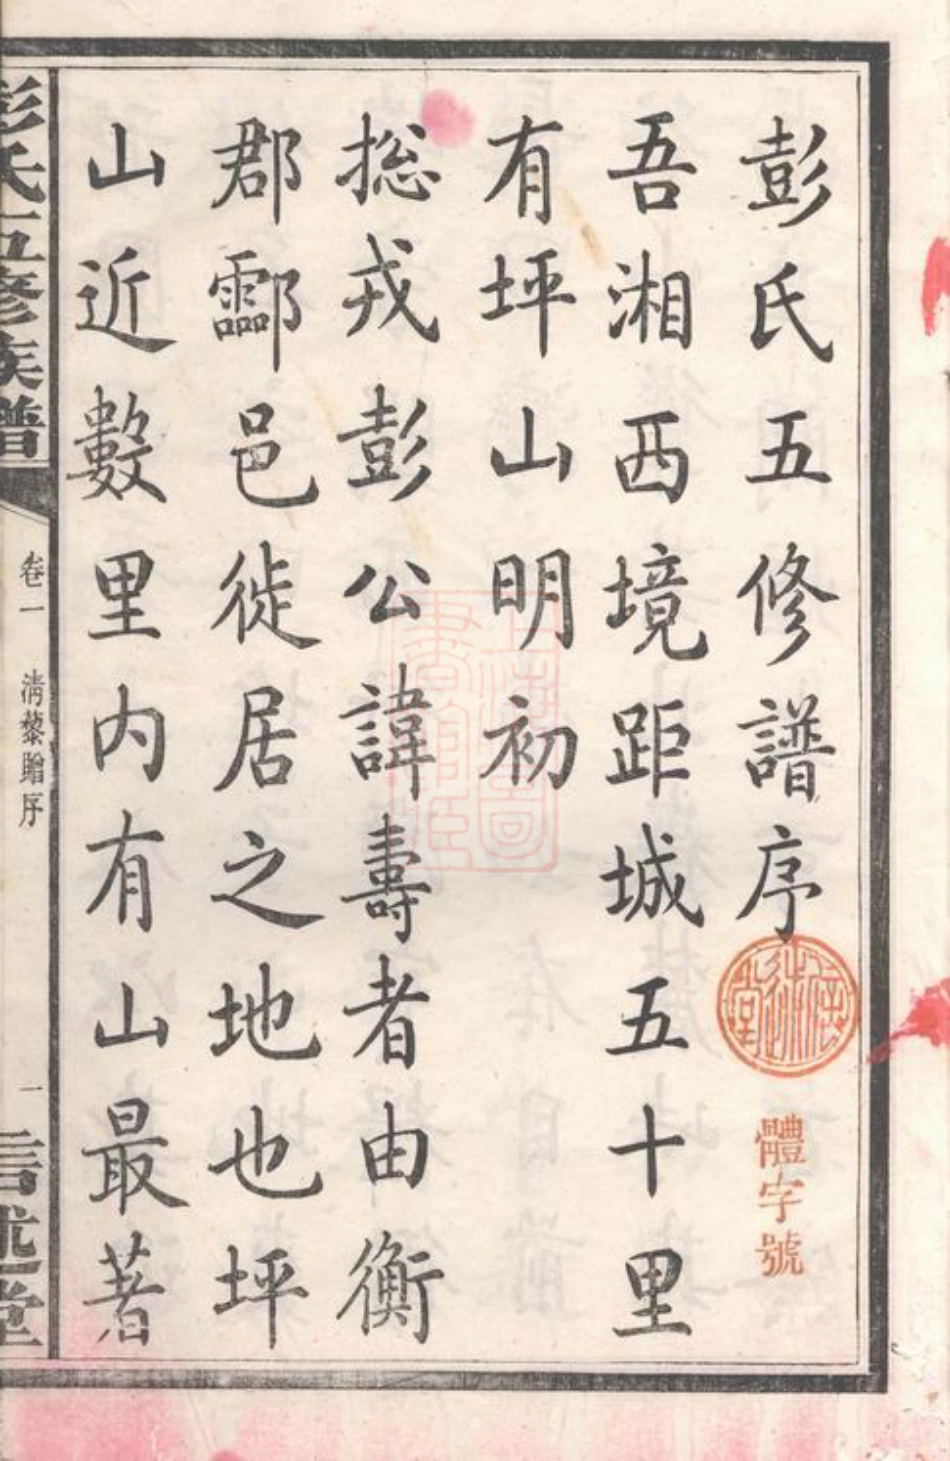 彭氏五修譜序
體字號
吾湘西境距城五十里
有坪山明初
捴戎彭公諱壽者由衡
郡酃邑徙居之地也坪
山近數里内有山最著
彭氏五修族譜
卷一
清藜贈序
一
信述堂